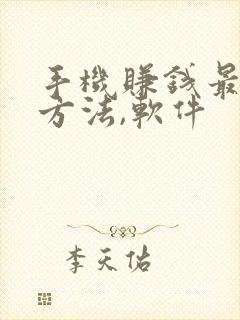 手機賺錢最
方法,軟件
李天佑